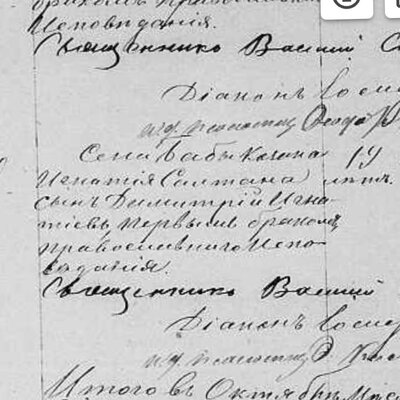 бракомъ православнаго
Исповѣданія.
Священникъ Василій
Діаконъ Іосиф
и.д. псаломщ. Ѳеодо
Села Бабы Козака 19
Игнатія Салтана лѣт.
сынъ Димитрій Игна-
тіевъ, первымъ бракомъ,
православнаго Испо-
вѣданія.
Священникъ Василій
Діаконъ Іосиф
и.д. псаломщ.
Итого въ Октябрѣ Мѣс